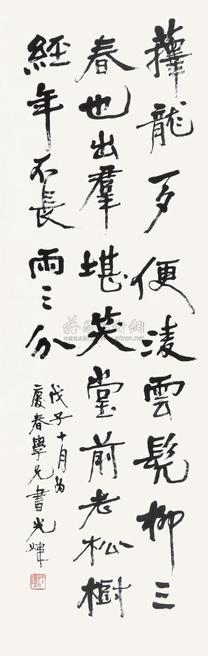 蘀龍一夕便淩雲髡柳三
春也出羣堪笑堂前老松樹
經年不長兩三分
戊子十月為
慶春學兄書光煒